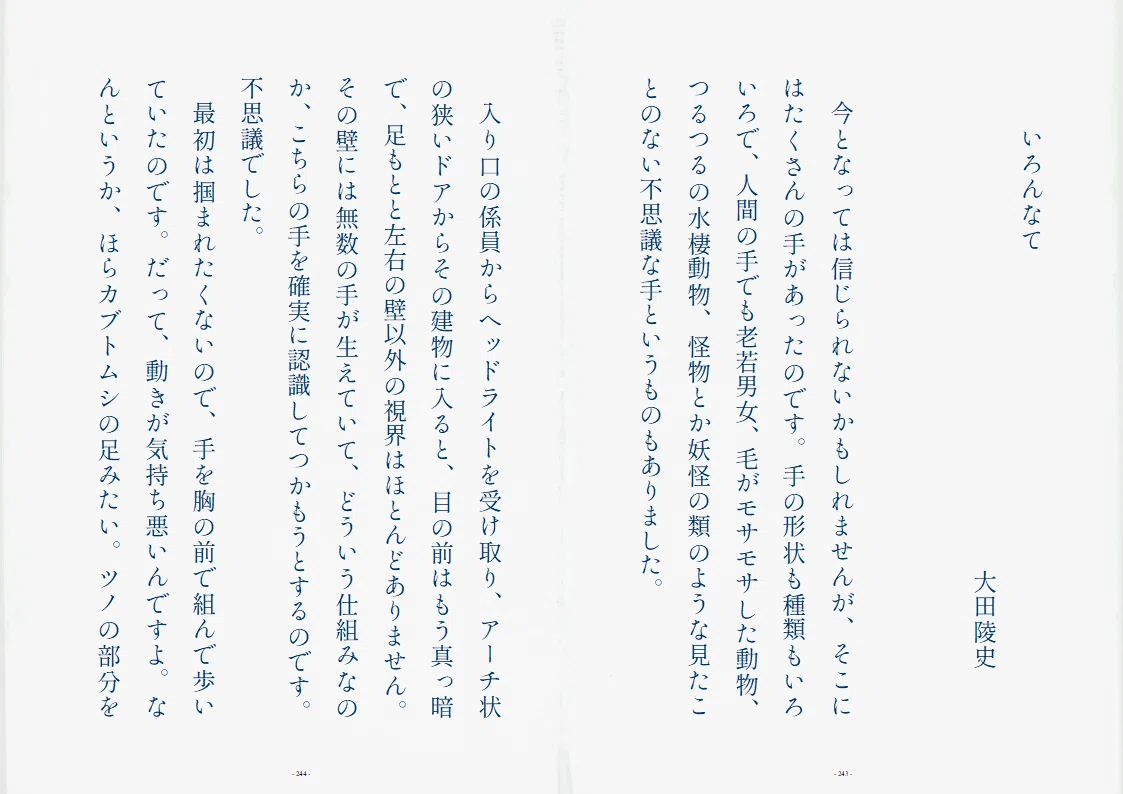 いろんなて
大田陵史
今となっては信じられないかもしれませんが、そこに
はたくさんの手があったのです。手の形状も種類もいろ
いろで、人間の手でも老若男女、毛がモサモサした動物、
つるつるの水棲動物、怪物とか妖怪の類のような見たこ
とのない不思議な手というものもありました。
- 243 -
入り口の係員からヘッドライトを受け取り、アーチ状
の狭いドアからその建物に入ると、目の前はもう真っ暗
で、足もとと左右の壁以外の視界はほとんどありません。
その壁には無数の手が生えていて、どういう仕組みなの
か、こちらの手を確実に認識してつかもうとするのです。
不思議でした。
最初は掴まれたくないので、手を胸の前で組んで歩い
ていたのです。だって、動きが気持ち悪いんですよ。な
んというか、ほらカブトムシの足みたい。ツノの部分を
- 244 -